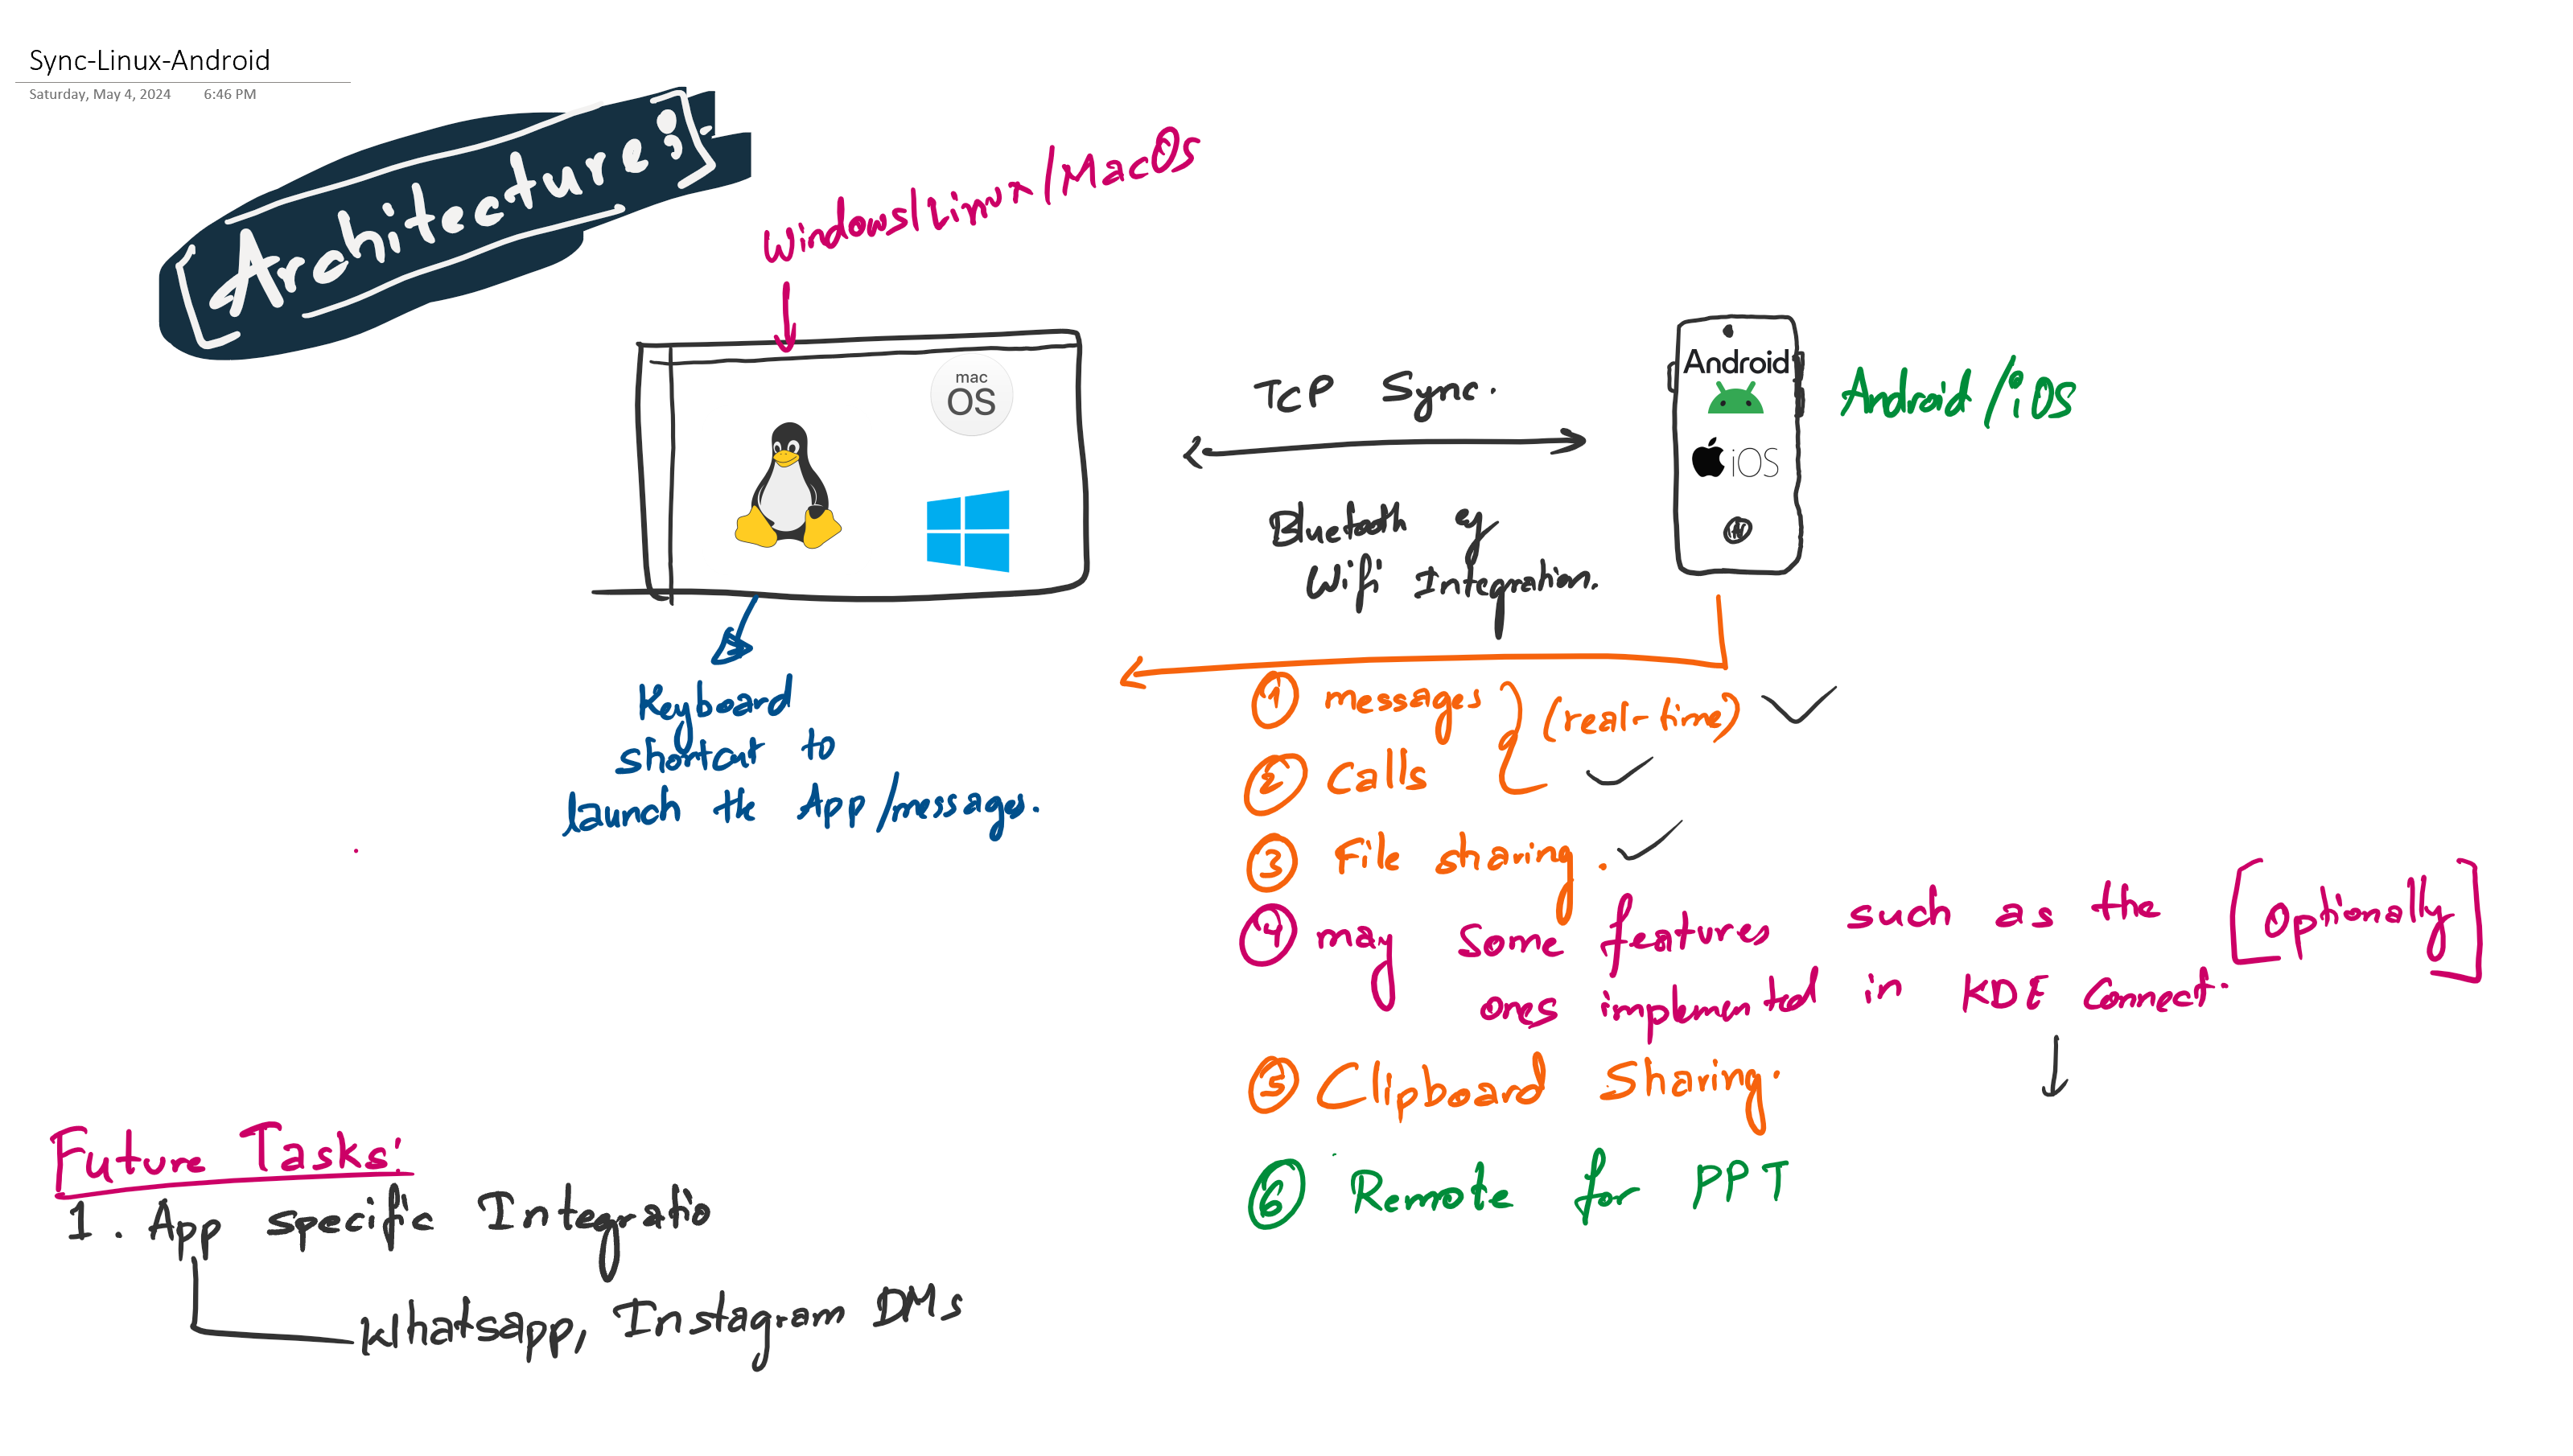 Sync-Linux-Android
Saturday, May 4, 2024 6:46 PM
[Architecture:]
Windows/Linux/MacOS
mac
OS
TCP Sync.
Bluetooth &
Wifi Integration.
Android
iOS
Android/iOS
Keyboard
shortcut to
launch the App/messages.
1 messages
(real-time)
2 Calls
3 File sharing.
4 may some features such as the [Optionally]
ones implemented in KDE Connect.
5 Clipboard Sharing.
6 Remote for PPT
Future Tasks:
1. App specific Integratio
Whatsapp, Instagram DMs